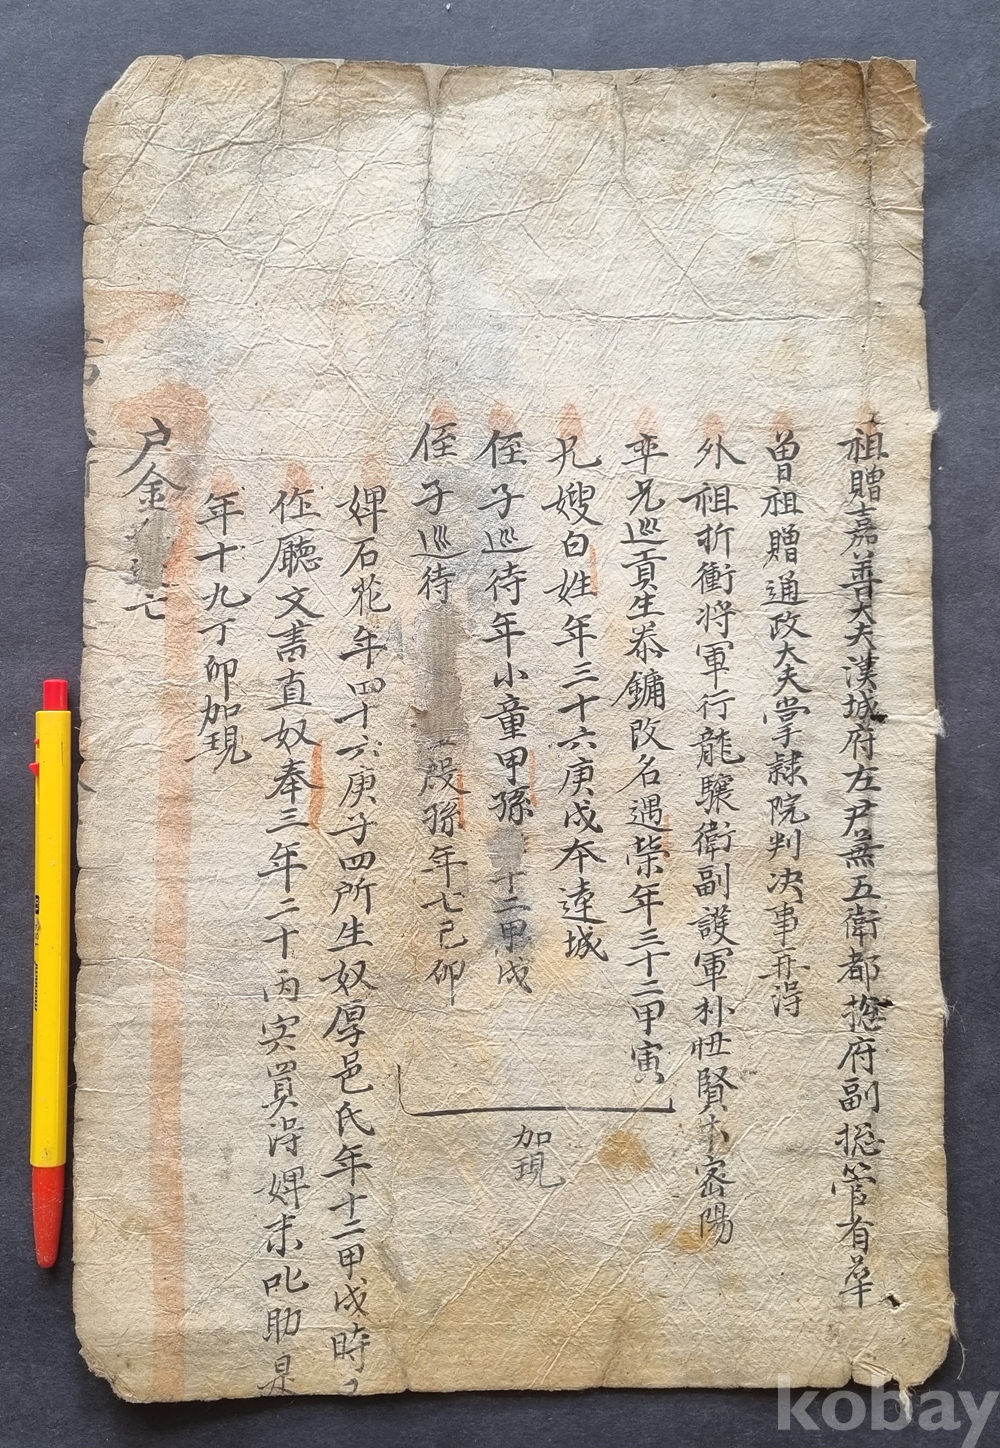 祖贈嘉善大夫漢城府左尹兼五衛都摠府副摠管有華
曾祖贈通政大夫掌隷院判决事再淂
外祖折衝將軍行龍驤衛副護軍朴 賢本密陽
率兄巡貢生泰鏞改名遇榮年三十二甲寅
兄嫂白姓年三十六庚戌本達城
侄子巡待年小童甲孫 十二甲戌
侄子巡待 殷孫年七己卯
加現
婢石花年四十六庚子四所生奴厚邑氏年十二甲戌時
作廳文書直奴奉三年二十丙寅買淂婢末叱助是
年十九丁卯加現
户金
kobay